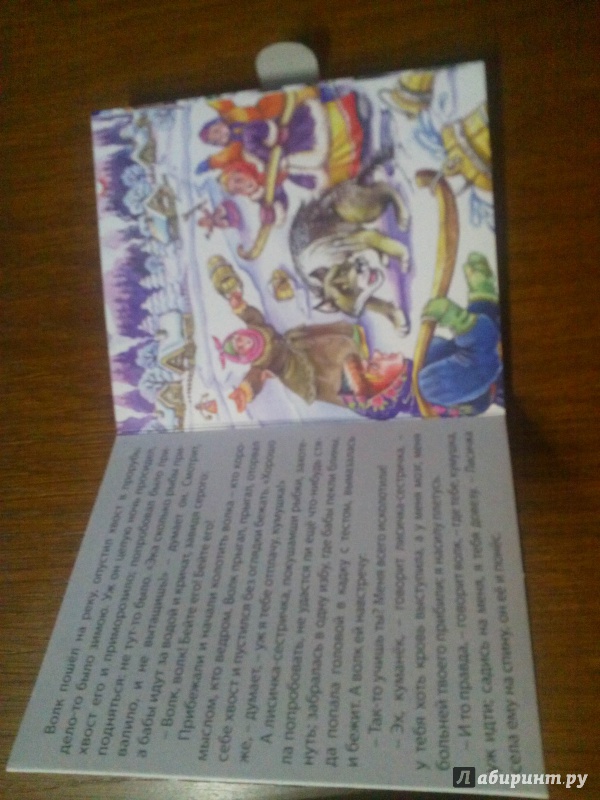 Волк пошёл на реку, опустил хвост в прорубь;
дело-то было зимою. Уж он целую ночь просидел,
хвост его и приморозило; попробовал было при-
подняться: не тут-то было. «Эка сколько рыбы при-
валило, и не вытащишь!» – думает он. Смотрит,
а бабы идут за водой и кричат, завидя серого:
– Волк, волк! Бейте его! Бейте его!
Прибежали и начали колотить волка – кто коро-
мыслом, кто ведром. Волк прыгал, прыгал, оторвал
себе хвост и пустился без оглядки бежать. «Хорошо
же, – думает, – уж я тебе отплачу, кумушка!»
А лисичка-сестричка, покушамши рыбки, захоте-
ла попробовать, не удастся ли ещё что-нибудь стя-
нуть; забралась в одну избу, где бабы пекли блины,
да попала головой в кадку с тестом, вымазалась
и бежит. А волк ей навстречу:
– Так-то учишь ты? Меня всего исколотили!
– Эх, куманёк, – говорит лисичка-сестричка, –
у тебя хоть кровь выступила, а у меня мозг, меня
больней твоего прибили: я насилу плетусь.
– И то правда, – говорит волк, – где тебе, кумушка,
уж идти; садись на меня, я тебя довезу. – Лисичка
села ему на спину, он её и понёс.
Лабиринт.ру